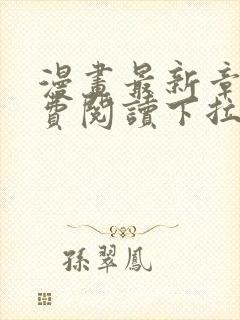 漫畫最新章
費閱讀下拉
孫翠鳳